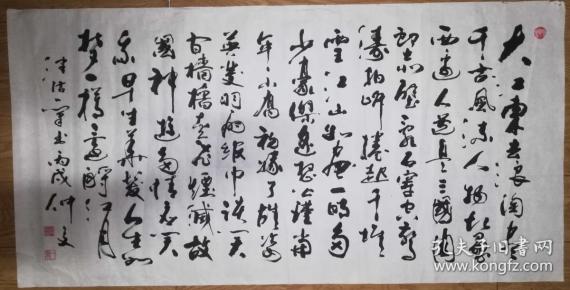 大江东去浪淘尽
千古风流人物故垒
西边人道是三国周
郎赤壁乱石穿空惊
涛拍岸卷起千堆
雪江山如画一时多
少豪杰遥想公瑾当
年小乔初嫁了雄姿
英发羽扇纶巾谈笑
间樯橹灰飞烟灭故
国神游多情应笑
我早生华发人生如
梦一樽还酹江月
丙戌仲夏
孔夫子旧书网
www.kongfz.com